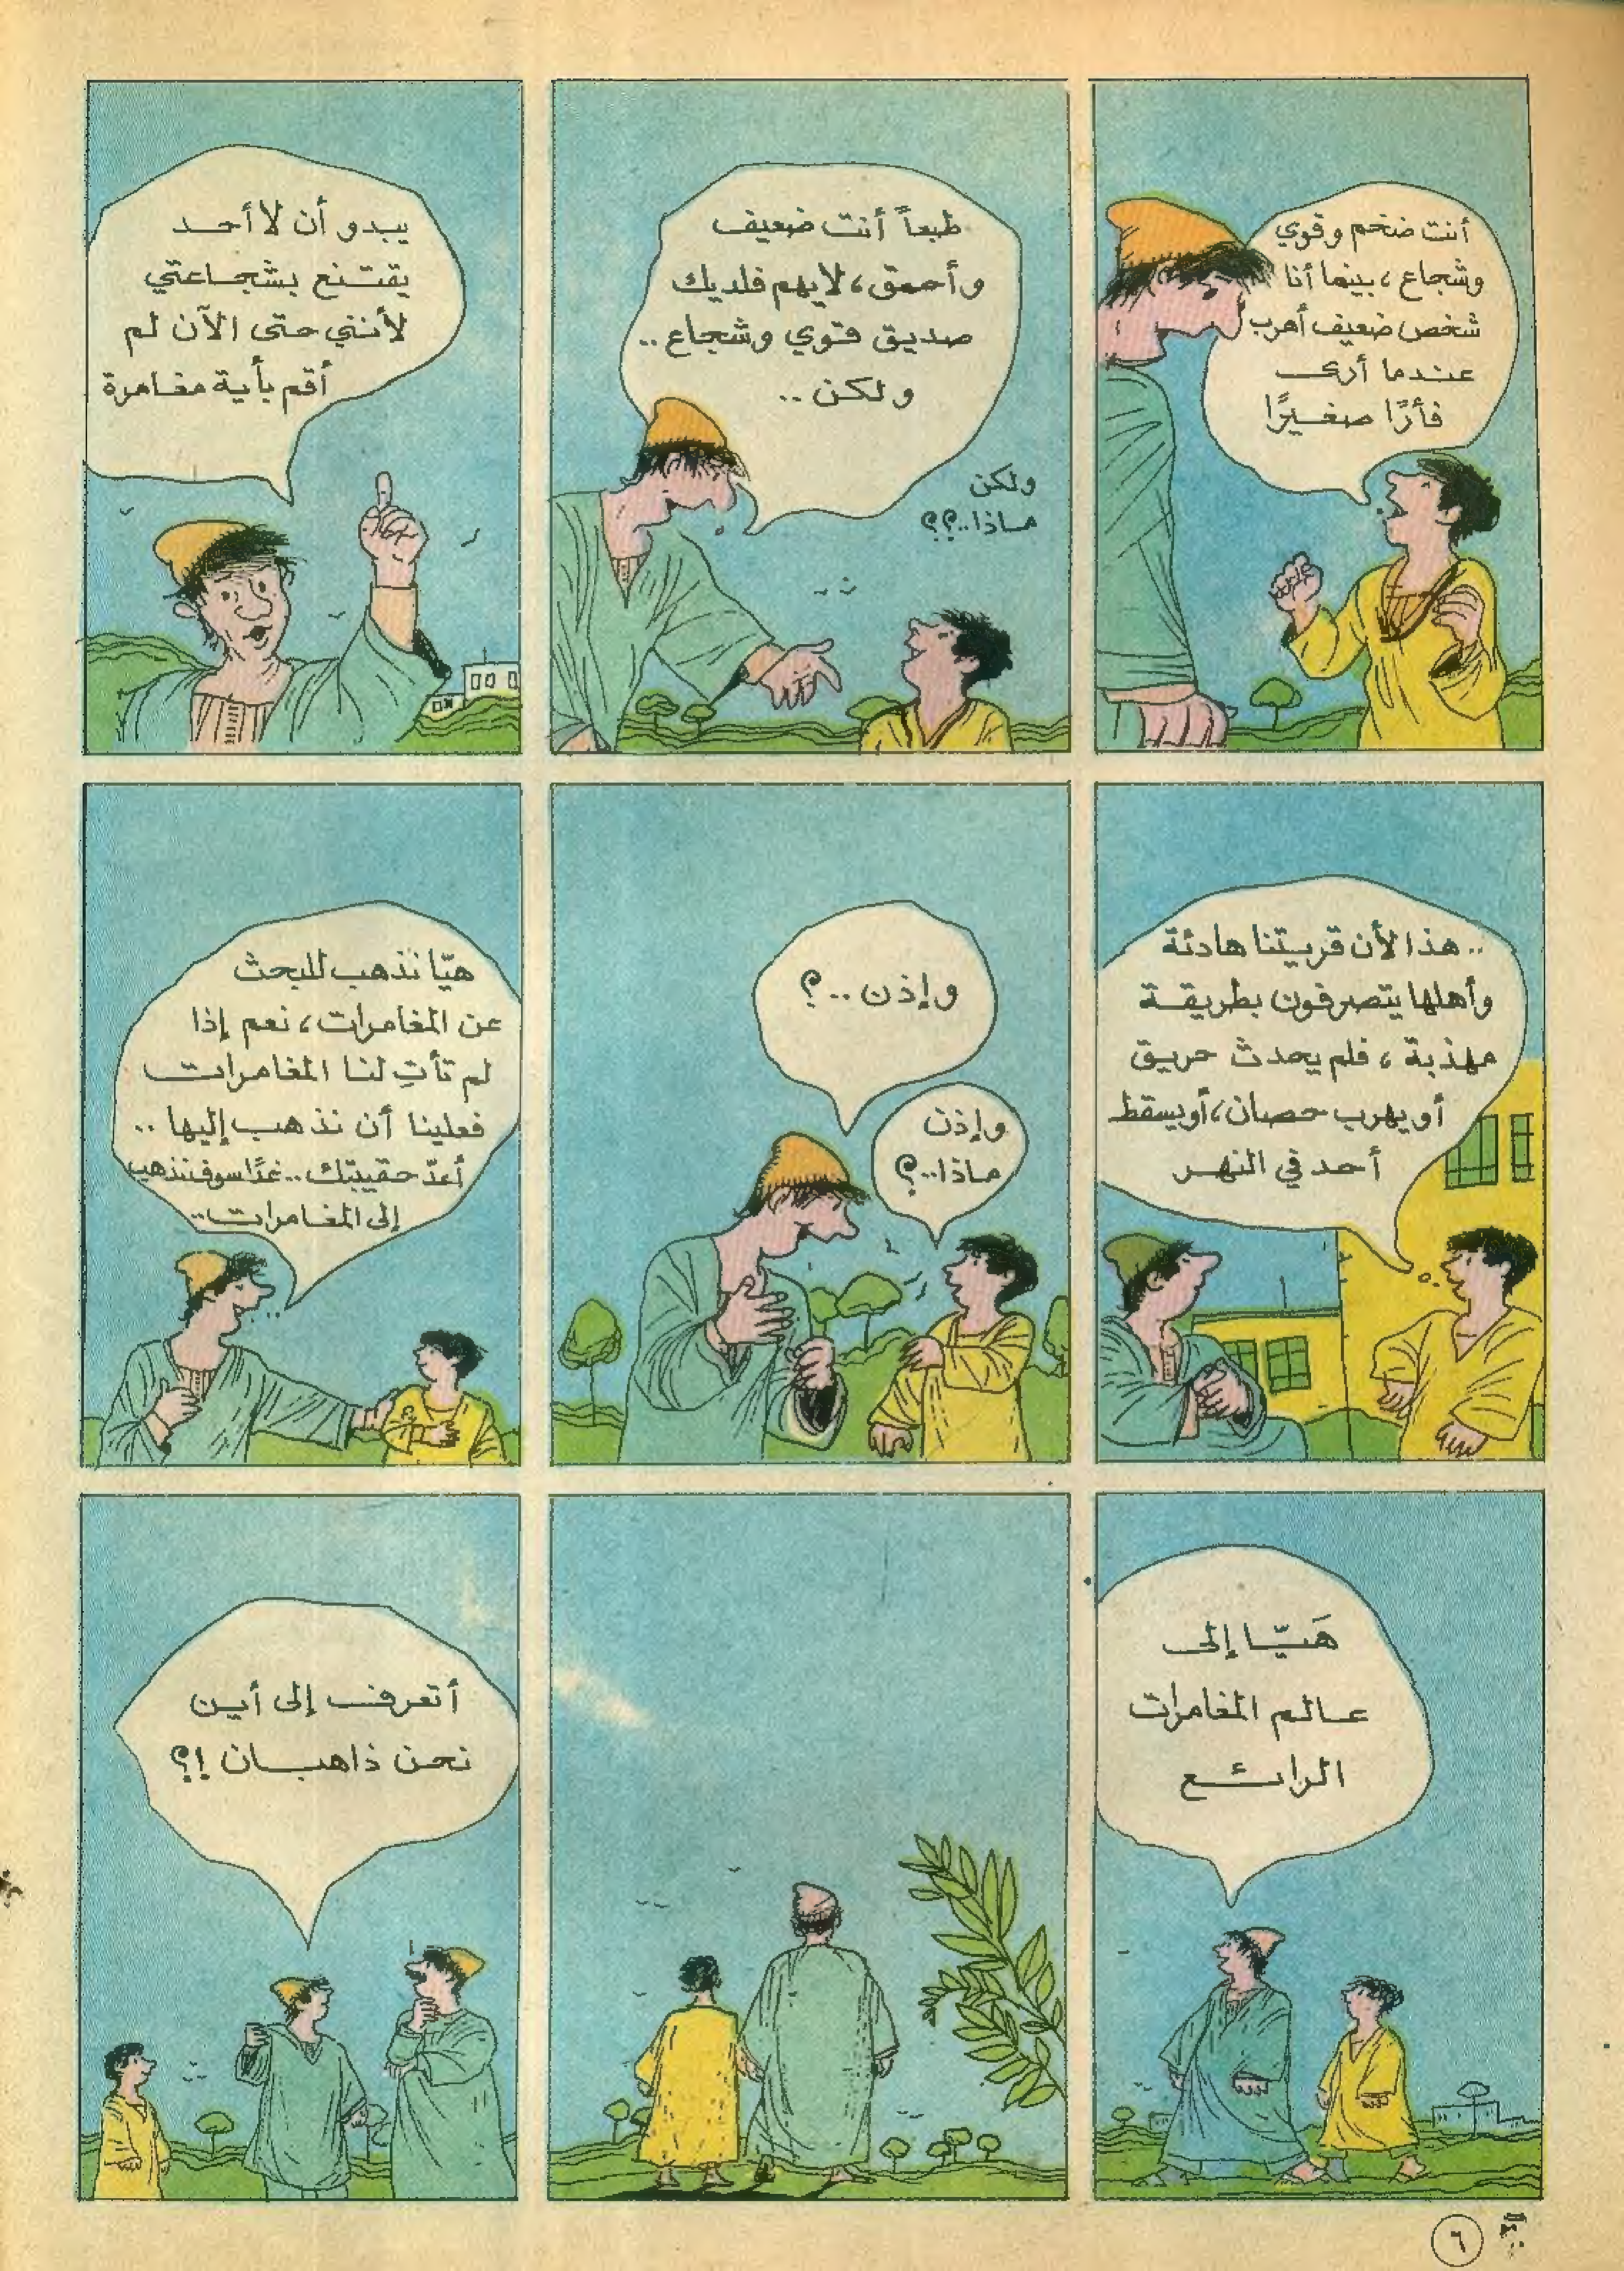 أنت ضخم وقوي
وشجاع، بينما أنا
شخص ضعيف أهرب
عندما أرى
فأرًا صغيرًا
طبعاً أنت ضعيف
وأحمق، لايهم فلديك
صديق قوي وشجاع..
ولكن..
ولكن
ماذا..؟؟
يبدو أن لا أحد
يقتنع بشجاعتي
لأنني حتى الآن لم
أقم بأية مغامرة
.. هذا لأن قريتنا هادئة
وأهلها يتصرفون بطريقة
مهذبة، فلم يحدث حريق
أو يهرب حصان، أو يسقط
أحد في النهر
وإذن..؟
وإذن
ماذا..؟
هيّا نذهب للبحث
عن المغامرات، نعم إذا
لم تأتِ لنا المغامرات
فعلينا أن نذهب إليها..
أعدّ حقيبتك.. غدًا سوف نذهب
إلى المغامرات..
هَيّا إلى
عالم المغامرات
الرائع
أتعرف إلى أين
نحن ذاهبان !؟
٦